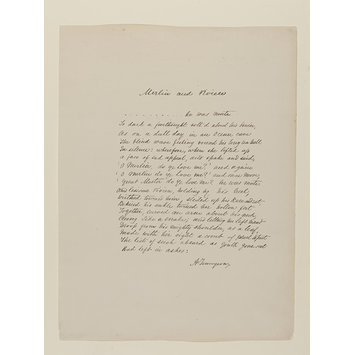 Merlin and Vivien
. . . . . . . . he was mute:
So dark a forethought roll'd about his brain,
As on a dull day in an ocean cave
The blind wave feeling round his long sea-hall
In silence: wherefore, when she lifted up
A face of sad appeal, and spake and said,
"O Merlin do ye love me?" and again
"O Merlin do ye love me?" and once more,
"Great Master do ye love me?" he was mute.
And lissome Vivien, holding by his heel,
Writhed toward him, slided up his knee and sat,
Behind his ankle twined her hollow feet
Together, curved an arm about his neck,
Clung like a snake; and letting her left hand
Droop from his mighty shoulder, as a leaf,
Made with her right a comb of pearl to part
The lists of such a beard as youth gone out
Had left in ashes:
A Tennyson